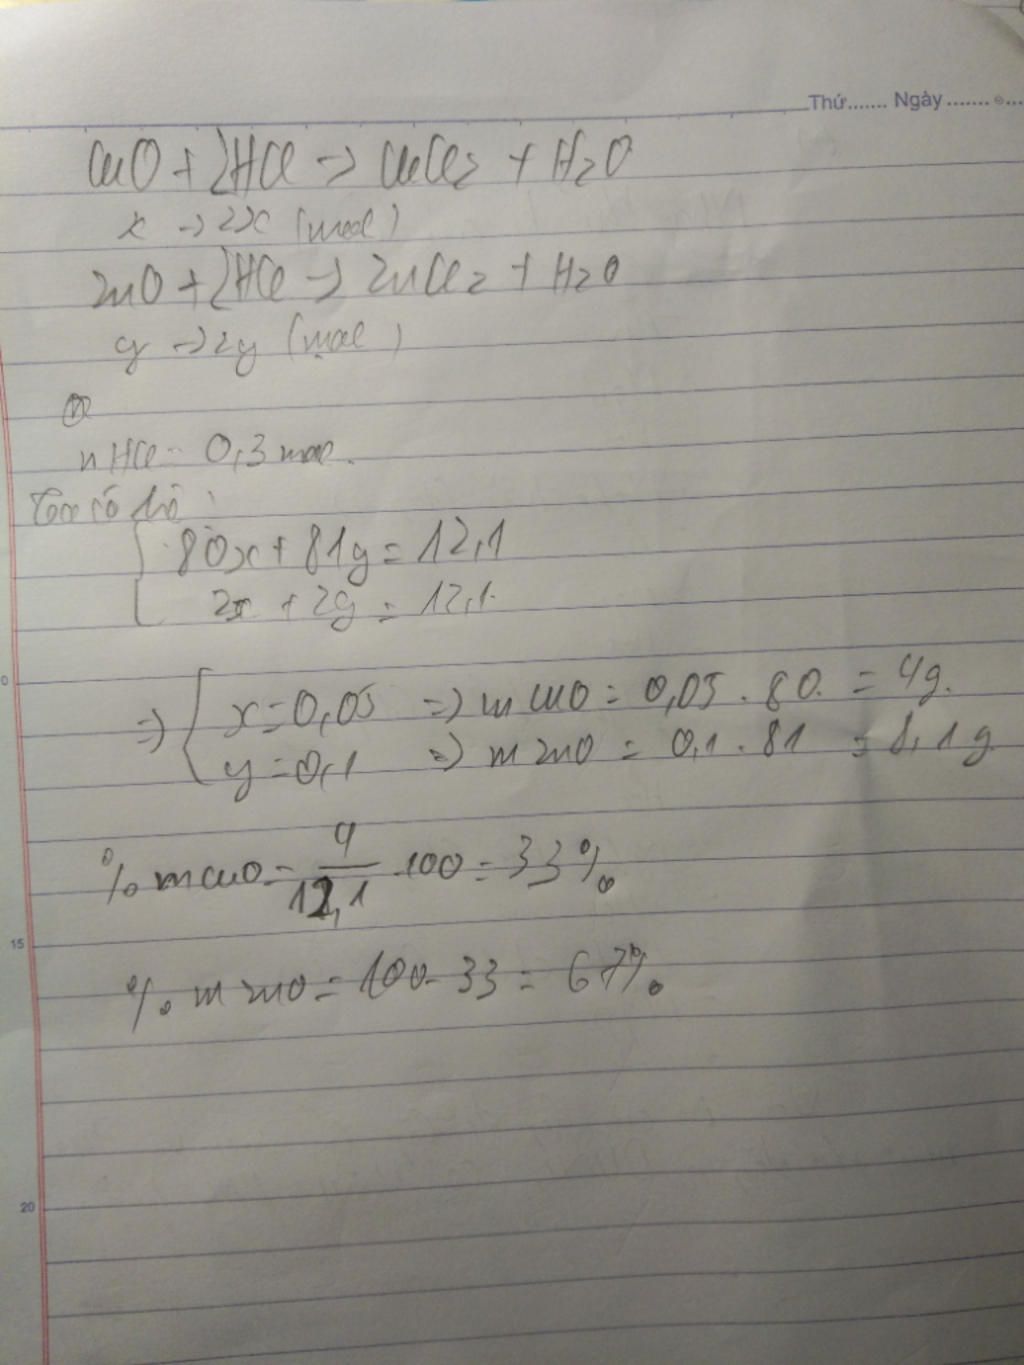 Thứ....... Ngày...........
CuO + 2HCl -> CuCl2 + H2O
x -> 2x (mol)
ZnO + 2HCl -> ZnCl2 + H2O
y -> 2y (mol)
nHCl = 0,3 mol.
Ta có hệ:
80x + 81y = 12,1
2x + 2y = 12,1
0
=> { x = 0,05 => mCuO = 0,05 . 80. = 4g.
y = 0,1 => mZnO = 0,1 . 81 = 8,1g
%mCuO = 4/12,1 . 100 = 33%
15
%mZnO = 100 - 33 = 67%.
20